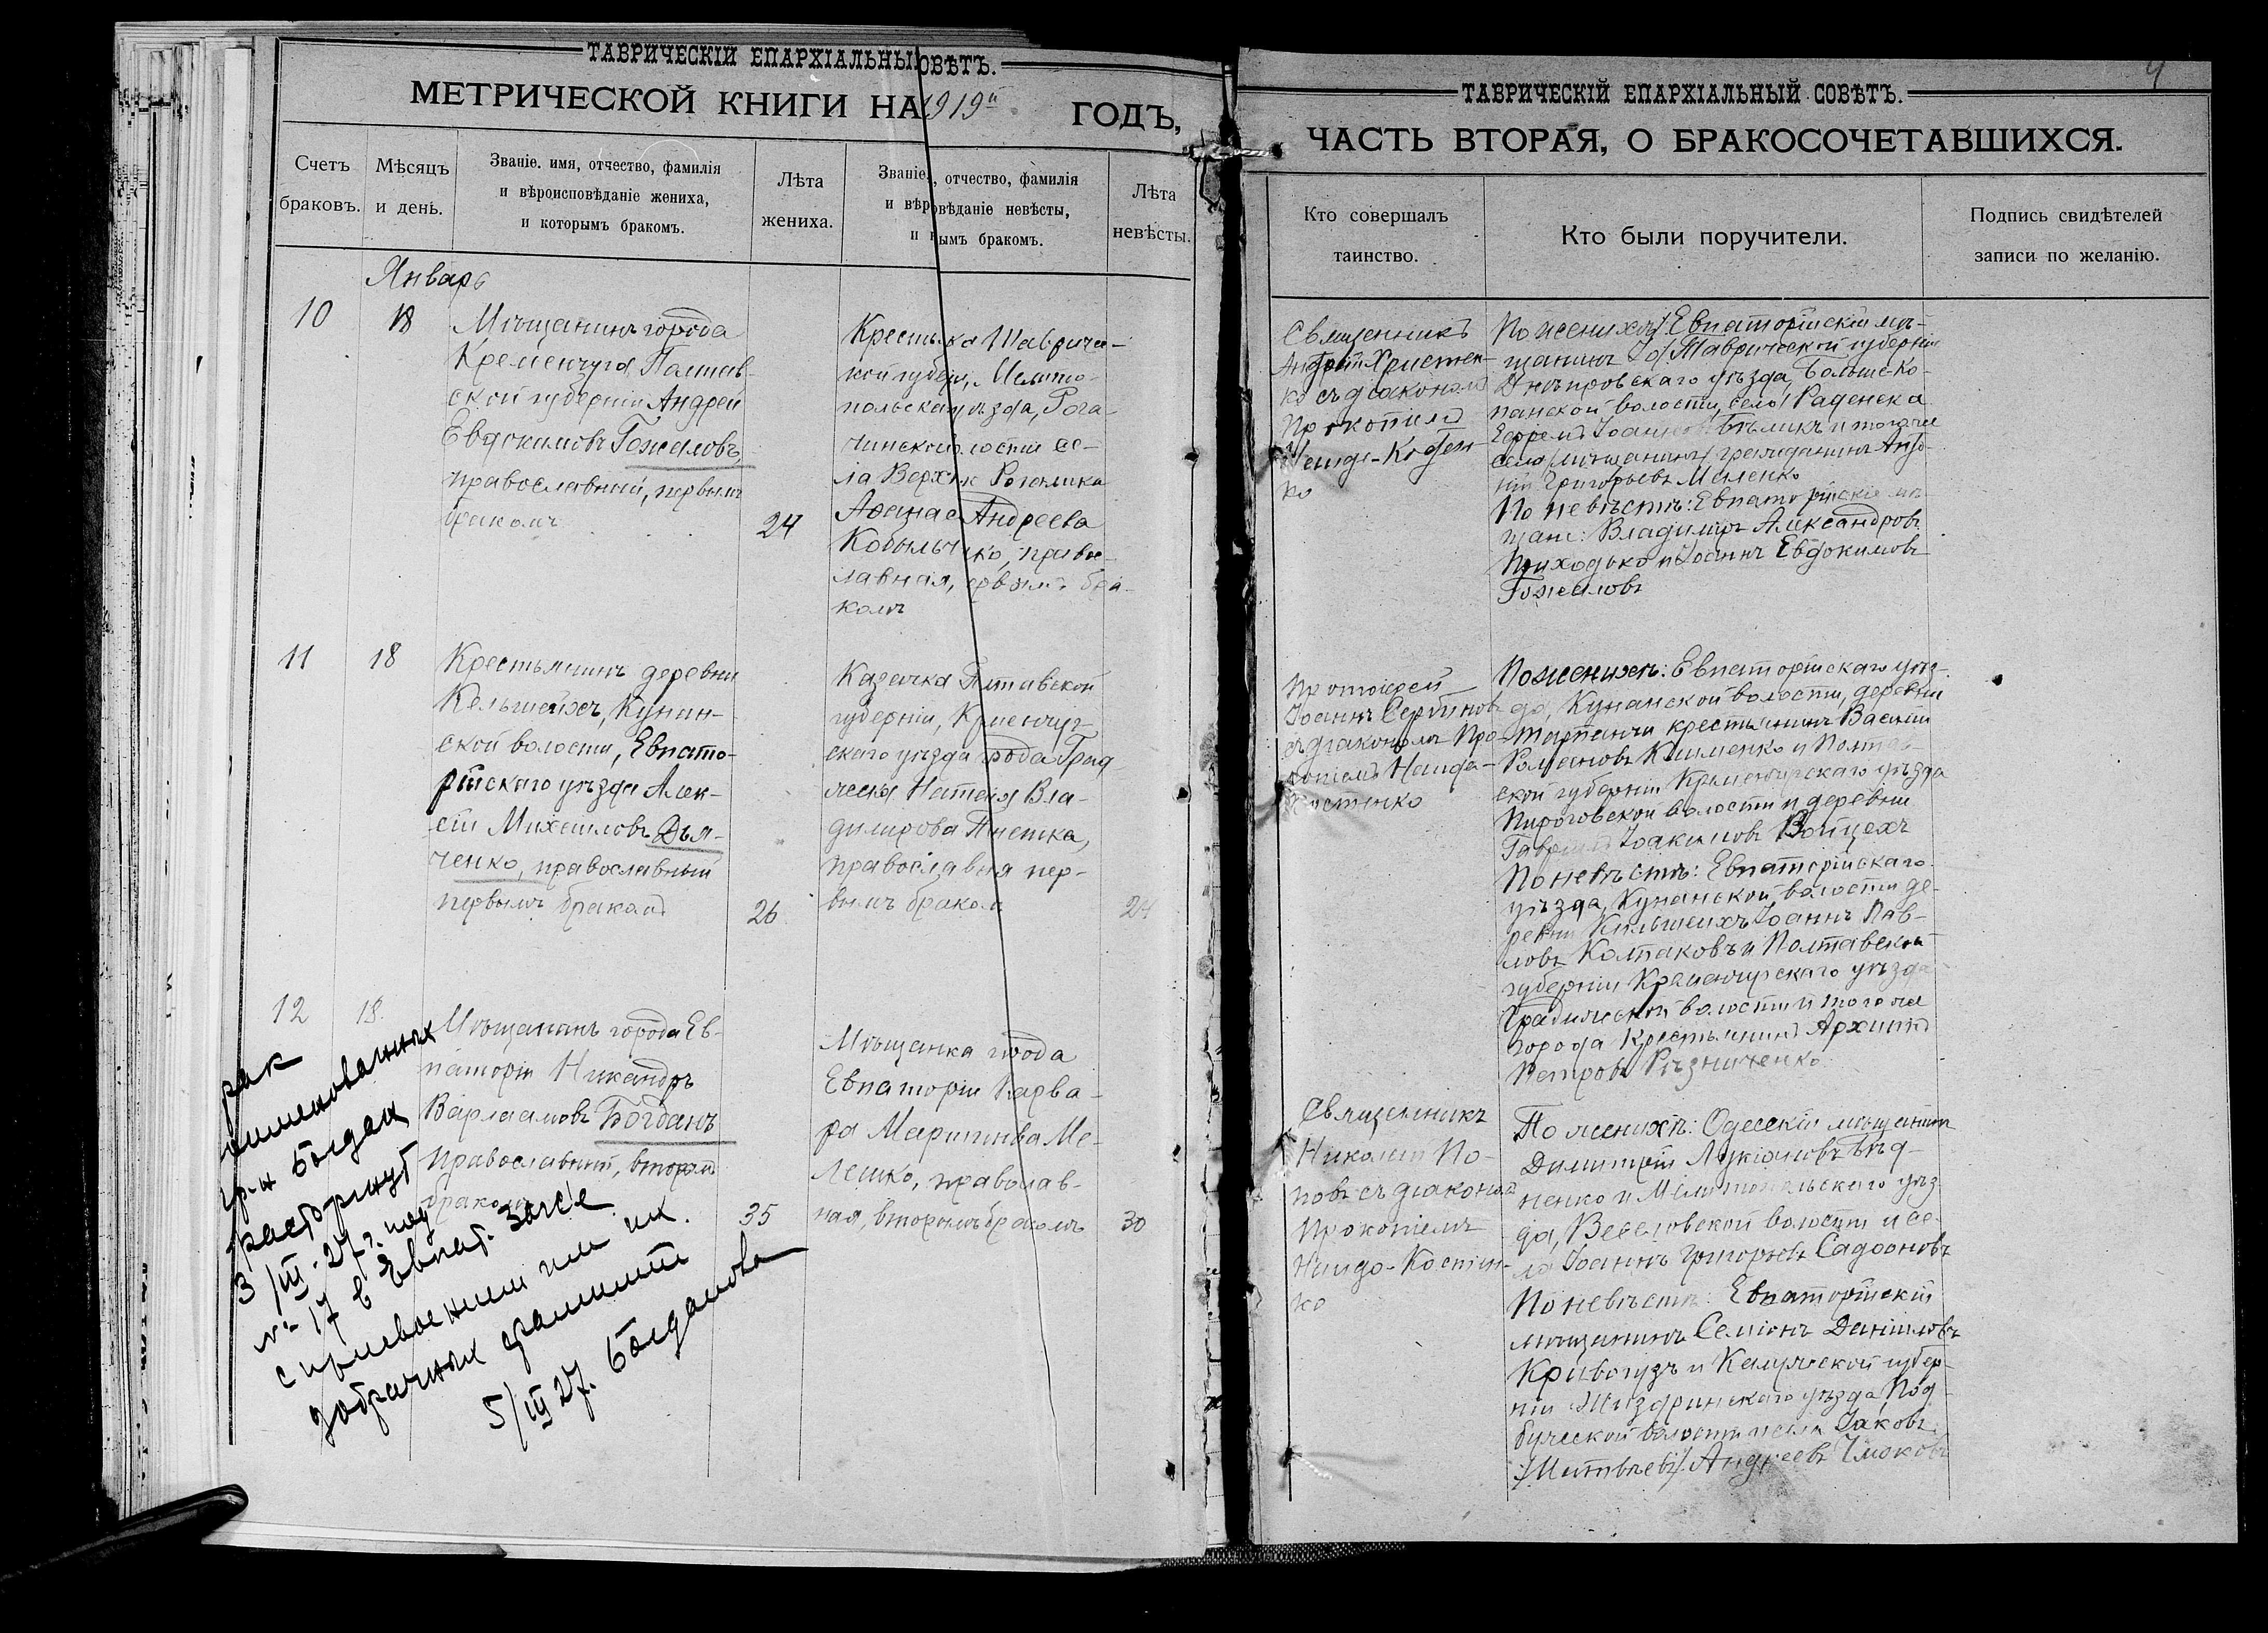 ТАВРИЧЕСКІЙ ЕПАРХІАЛЬНЫ ОВѢТЪ.
МЕТРИЧЕСКОЙ КНИГИ НА 1919й ГОДЪ,
Счетъ браковъ.
Мѣсяцъ и день.
Званіе. имя, отчество, фамилія
и вѣроисповѣданіе жениха,
и которымъ бракомъ.
Лѣта жениха.
Званіе, отчество, фамилія
и вѣр овѣданіе невѣсты,
и ымъ бракомъ.
Лѣта невѣсты.
Январь
10
18
Мѣщанинъ города
Кременчуга Полтав-
ской губерніи Андрей
Евдокимовъ Гожаловъ,
православный, первымъ
бракомъ
24
Крестьнка Тавриче-
кой губерн, Мелито-
польска уѣзда, Рога-
чинской лости се-
ла Верхн Рогачика
Андреева
православная, ервымъ бра-
комъ
11
18
Крестьянинъ деревни
Кельшейхъ, Кунан-
ской волости, Евпато-
рійскаго уѣзда Алек-
сѣй Михаиловъ Дья-
ченко, православный
первымъ бракомъ
26
Казачка Птавской
губерніи, Кременчуг-
скаго уѣзда рода Град
Вла-
димирова
православня пер-
вымъ браком
24
12
18.
Мѣщанинъ города Ев-
паторіи Никандръ
Варлаамовъ Богданъ
Православный, вторымъ
бракомъ
35
Мѣщанка города
Евпаторіи Варва-
ра Мартинова Ме-
лешко, православ-
ная, вторымъ бракомъ
30
рак
именованных
гр-н Богдан
расторгнут
3/III-27 г. под
№ 17 в Евпат. Загсе
с присвоением им их
добрачных фамилий
5/III 27. Богданова
4
ТАВРИЧЕСКІЙ ЕПАРХІАЛЬНЫЙ СОВѢТЪ.
ЧАСТЬ ВТОРАЯ, О БРАКОСОЧЕТАВШИХСЯ.
Кто совершалъ таинство.
Кто были поручители.
Подпись свидѣтелей записи по желанію.
Священникъ
Андрей Христен-
ко съ діакономъ
Прокопіемъ
По женихѣ: Евпаторійскій мѣ-
щанинъ Таврической губерніи
Днѣпровскаго уѣзда, Больше-Ко-
панской волости, села Раденска
Ефремъ Іоанновъ Бѣликъ и того же
села гражданинъ Анто-
ній Григорьевъ Меленко
По невѣстѣ: Евпаторійскіе мѣ-
щане: Владиміръ Александровъ
Приходько и Іоаннъ Евдокимовъ
Гожаловъ
Протоіерей
Іоаннъ Сербиновъ
съ діакономъ Про-
копіемъ Наида-
Костенко
По женихѣ: Евпаторійскаго уѣз-
да, Кунанской волости, деревни
Тарпанчи крестьянинъ Василій
Романовъ Клименко и Полтав-
ской губерніи Кременчугскаго уѣзда
Пироговской волости и деревни
Гавріилъ Іоакимовъ Войцехъ
По невѣстѣ: Евпаторійскаго
уѣзда, Кунанской волости де-
ревни Кильшейхъ Іоаннъ Пав-
ловъ Колпаковъ и Полтавской
губерніи Кременчугскаго уѣзда
Градижской волости и того же
города Крестьянинъ Архипъ
Петровъ Рѣзниченко
Священникъ
Николай По-
повъ съ діакономъ
Прокопіемъ
Наидо-Костен-
ко
По женихѣ: Одесскій мѣщанинъ
Димитрій Лукіановъ Бѣд-
ненко и Мелитопольскаго уѣз-
да, Веселовской волости и се-
ла Іоаннъ Григорьевъ Садооновъ
По невѣстѣ: Евпаторійскій
мѣщанинъ Семіонъ Даніиловъ
Кривогузъ и Калужской губер-
ніи Жиздринскаго уѣзда, Под-
бужской волости и села Іаковъ
/Матвѣевъ/ Андреевъ